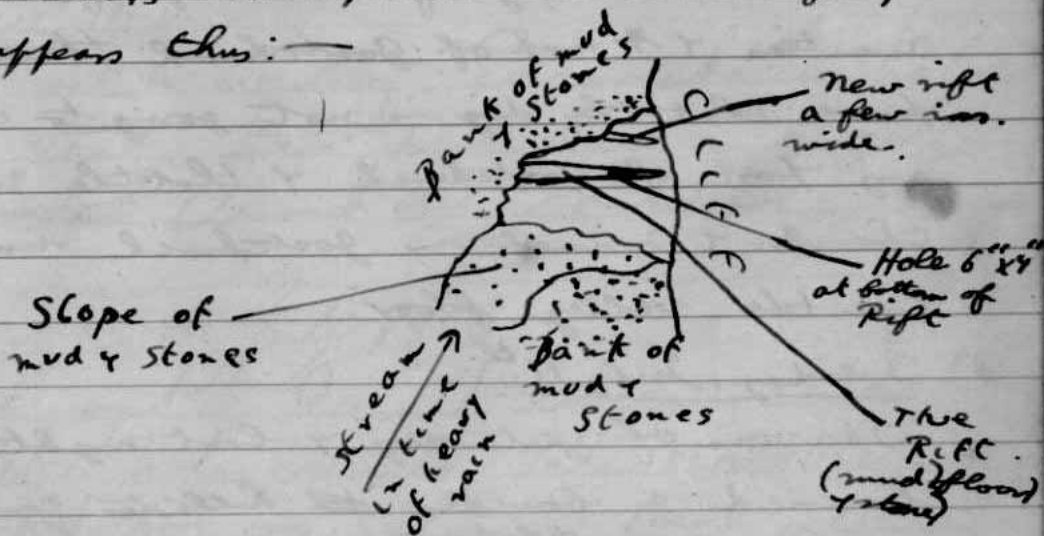 appears thus: —
Bank of mud
& Stones
New rift
a few ins.
wide.
Hole 6" x 4"
at bottom of
Rift
Slope of
mud & Stones
Bank of
mud &
Stones
Stream
in time
of heavy
rain
The
Rift.
(mud floor)
& stone)